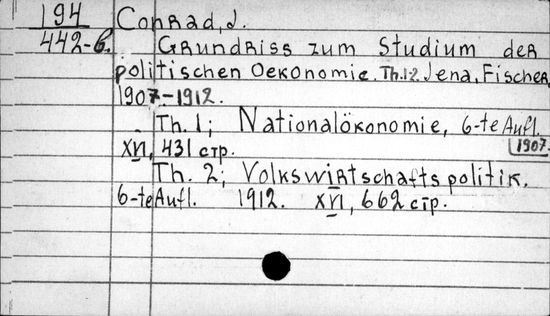 194 Conrad, J.
442-б. Grundriss zum Studium der
politischen Oekonomie. Th.1-2. Jena, Fischer,
1907-1912.
Th. 1; Nationalökonomie, 6-te Aufl.
1907.
XVI, 431 стр.
Th. 2; Volkswirtschaftspolitik.
6-te Aufl. 1912. XVI, 662 стр.